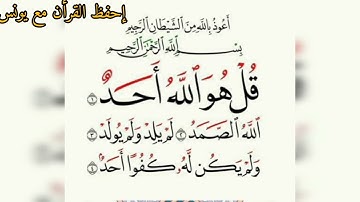 إحفظ القرآن مع يونس
أَعُوذُ بِاللَّهِ مِنَ الشَّيْطَانِ الرَّجِيمِ
بِسْمِ ٱللَّهِ ٱلرَّحْمَٰنِ ٱلرَّحِيمِ
قُلْ هُوَ ٱللَّهُ أَحَدٌ ١
ٱللَّهُ ٱلصَّمَدُ ٢ لَمْ يَلِدْ وَلَمْ يُولَدْ ٣
وَلَمْ يَكُن لَّهُۥ كُفُوًا أَحَدٌۢ ٤